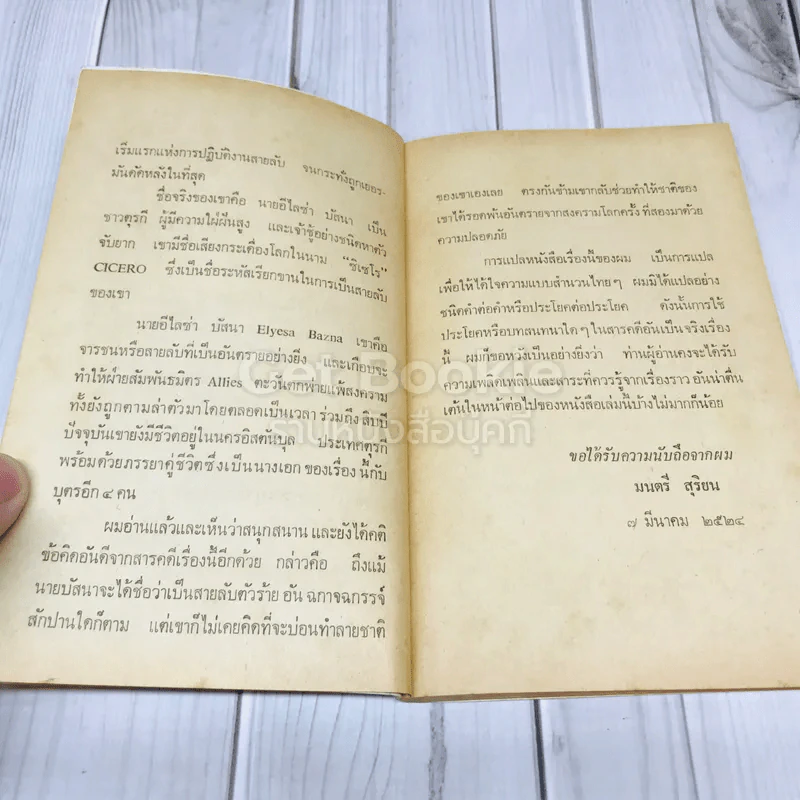 เริ่มแรกแห่งการปฏิบัติงานสายลับ จนกระทั่งถูกเยอร-
มันตัดหลังในที่สุด
ชื่อจริงของเขาคือ นายอีไลซ่า บัสนา เป็น
ชาวตุรกี ผู้มีความใฝ่ฝันสูง และเจ้าชู้อย่างชนิดหาตัว
จับยาก เขามีชื่อเสียงกระเดื่องโลกในนาม “ซิเซโร”
CICERO ซึ่งเป็นชื่อรหัสเรียกขานในการเป็นสายลับ
ของเขา
นายอีไลซ่า บัสนา Elyesa Bazna เขาคือ
จารชนหรือสายลับที่เป็นอันตรายอย่างยิ่ง และเกือบจะ
ทำให้ฝ่ายสัมพันธมิตร Allies ตะวันตกพ่ายแพ้สงคราม
ทั้งยังถูกตามล่าตัวมาโดยตลอดเป็นเวลา ร่วมถึง สิบปี
ปัจจุบันเขายังมีชีวิตอยู่ในนครอิสตันบุล ประเทศตุรกี
พร้อมด้วยภรรยาคู่ชีวิตซึ่งเป็นนางเอก ของเรื่อง นี้กับ
บุตรอีก ๔ คน
ผมอ่านแล้วและเห็นว่าสนุกสนาน และยังได้คติ
ข้อคิดอันดีจากสารคดีเรื่องนี้อีกด้วย กล่าวคือ ถึงแม้
นายบัสนาจะได้ชื่อว่าเป็นสายลับตัวร้าย อัน ฉกาจฉกรรจ์
สักปานใดก็ตาม แต่เขาก็ไม่เคยคิดที่จะบ่อนทำลายชาติ
ของเขาเองเลย ตรงกันข้ามเขากลับช่วยทำให้ชาติของ
เขาได้รอดพ้นอันตรายจากสงครามโลกครั้ง ที่สองมาด้วย
ความปลอดภัย
การแปลหนังสือเรื่องนี้ของผม เป็นการแปล
เพื่อให้ได้ใจความแบบสำนวนไทยๆ ผมมิได้แปลอย่าง
ชนิดคำต่อคำหรือประโยคต่อประโยค ดังนั้นการใช้
ประโยคหรือบทสนทนาใดๆ ในสารคดีอันเป็นจริงเรื่อง
นี้ ผมก็ขอหวังเป็นอย่างยิ่งว่า ท่านผู้อ่านคงจะได้รับ
ความเพลิดเพลินและสาระที่ควรรู้จากเรื่องราว อันน่าตื่น
เต้นในหน้าต่อไปของหนังสือเล่มนี้บ้างไม่มากก็น้อย
ขอได้รับความนับถือจากผม
มนตรี สุริยน
๗ มีนาคม ๒๕๒๔
Get Bookie
ร้านหนังสือบุคกี้